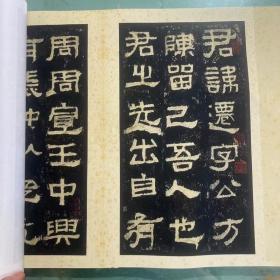 君諱遷字公方
陳留己吾人也
君之先出自有
周周宣王中興
有張仲以孝友